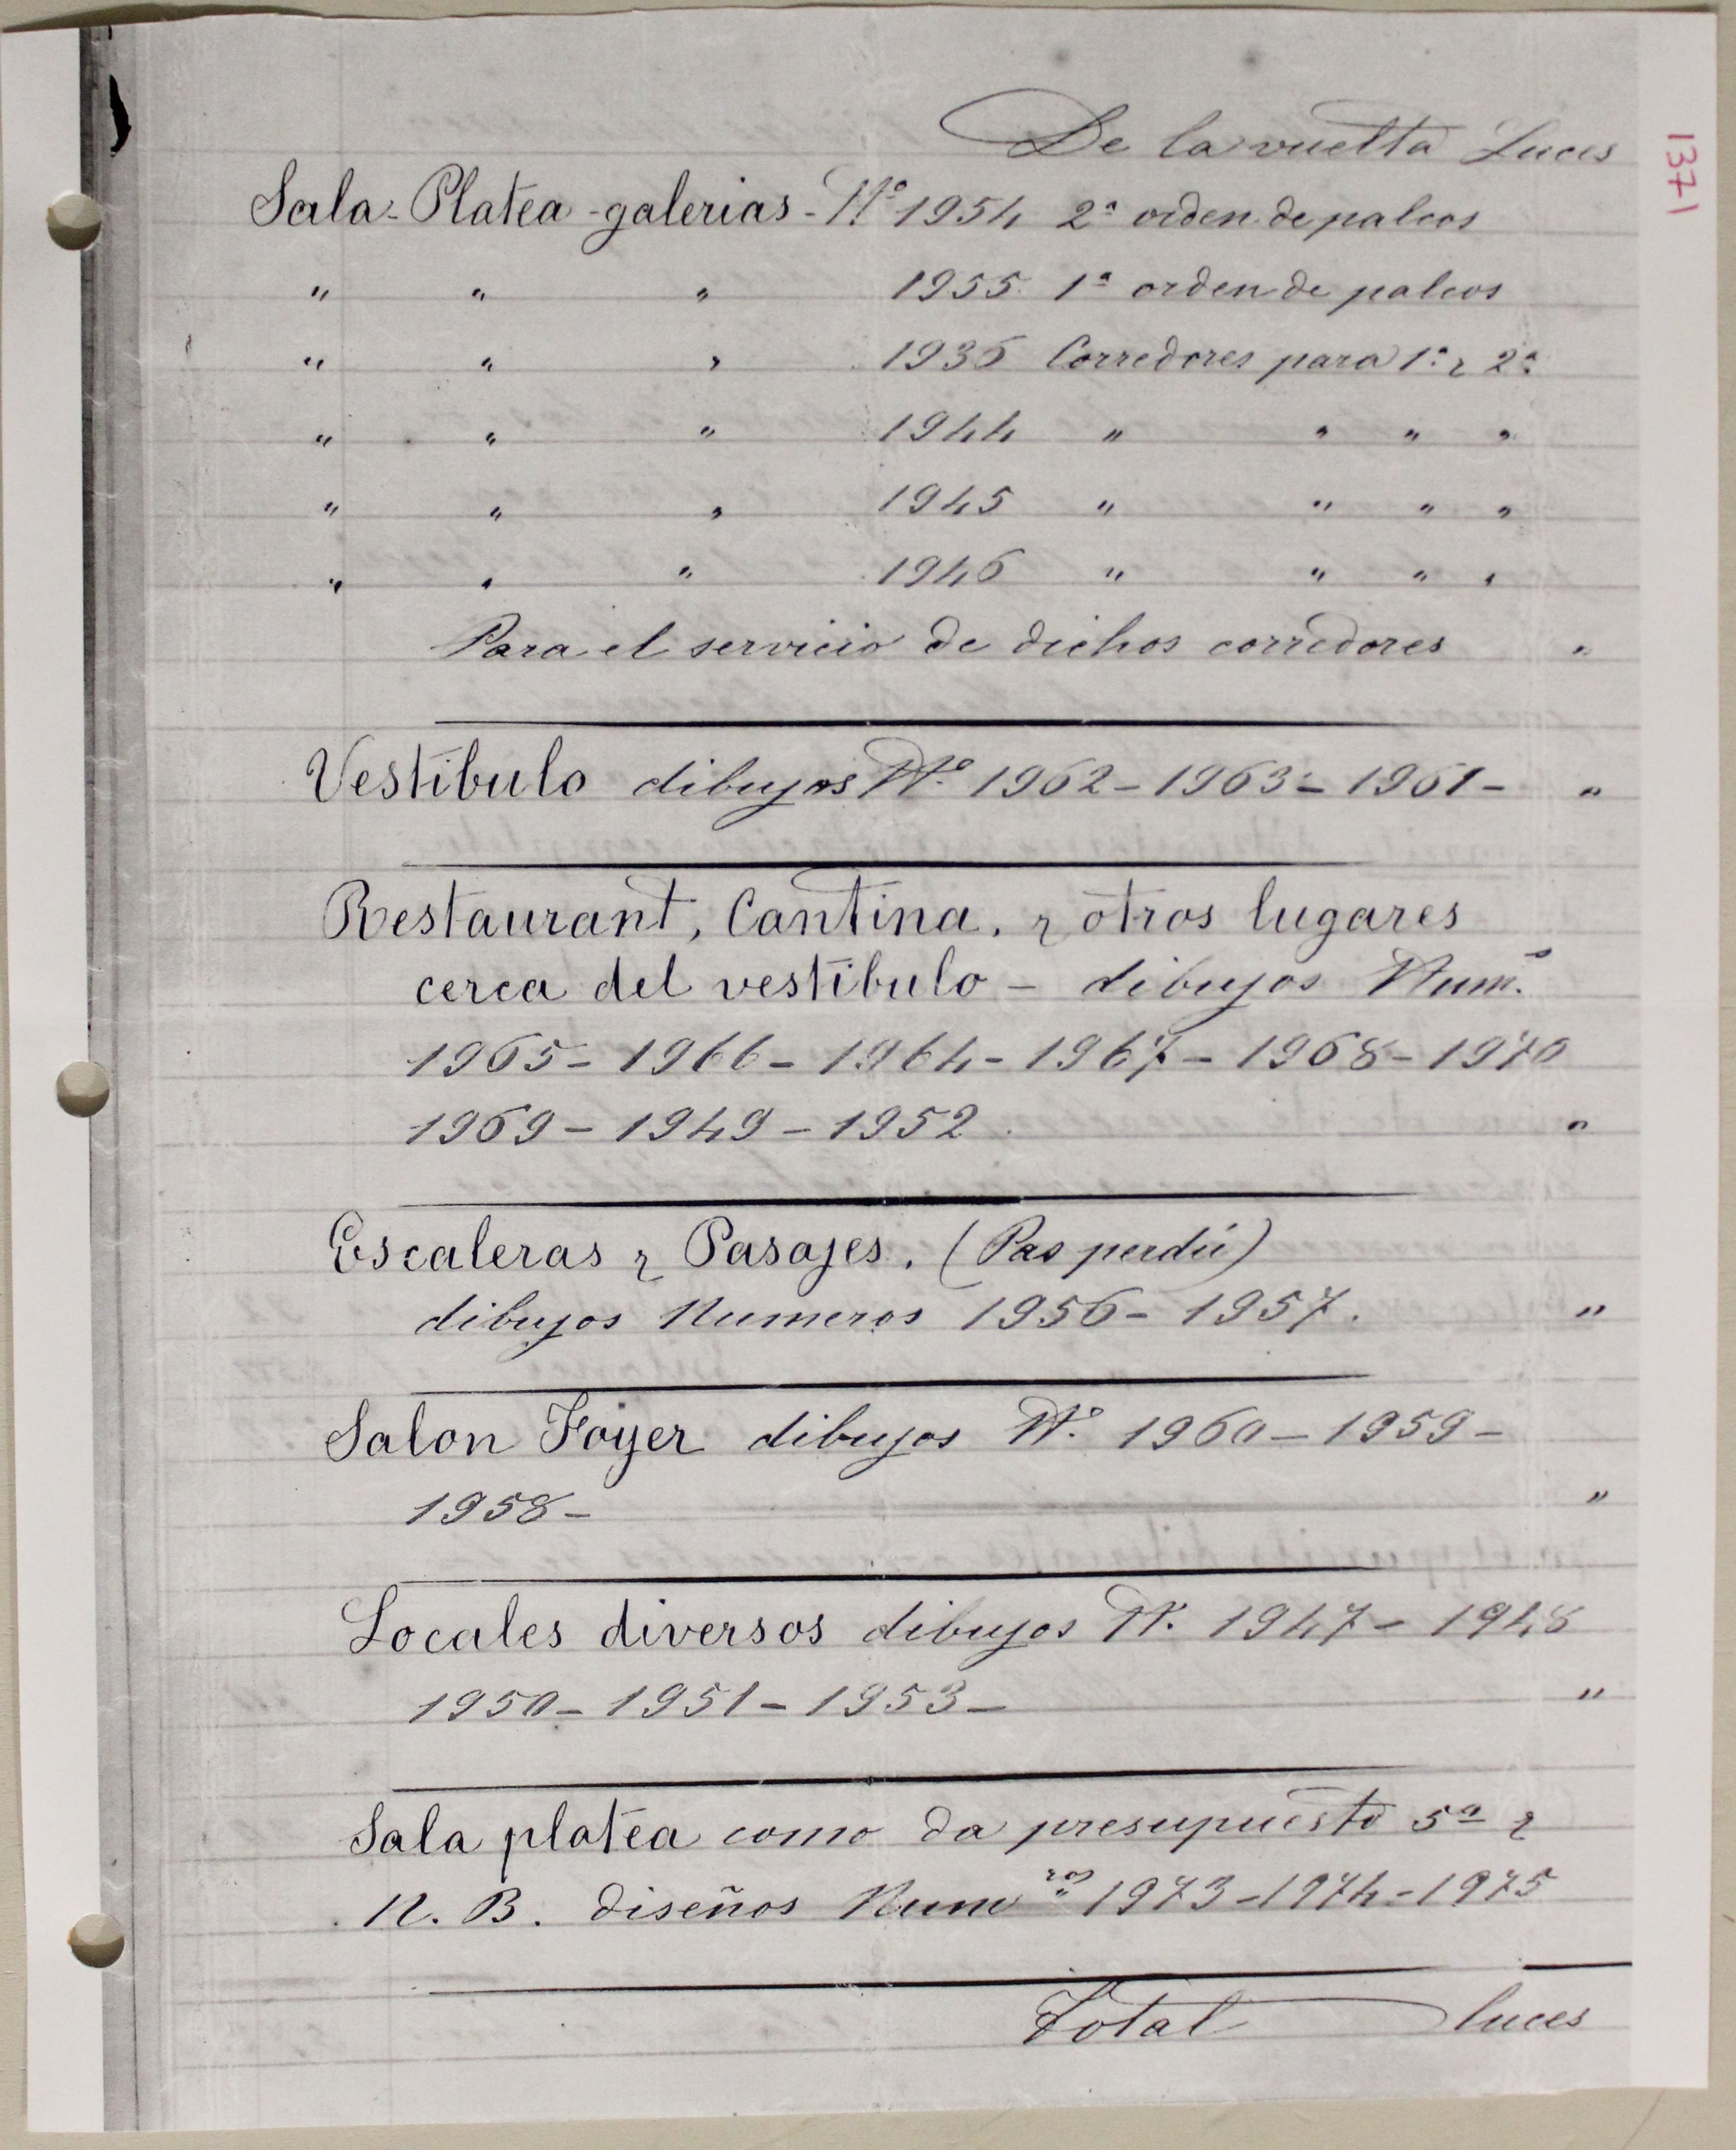 De la vuelta Luces
1371
Sala - Platea - galerias - Nº 1954 2ª orden de palcos
" " " 1955 1ª orden de palcos
" " " 1936 Corredores para 1ª y 2ª
" " " 1944 " " " "
" " " 1945 " " " "
" " " 1946 " " " "
Para el servicio de dichos corredores "
Vestibulo dibujos Nº 1962 - 1963 - 1961 - "
Restaurant, Cantina, y otros lugares
cerca del vestibulo - dibujos Num.s
1965 - 1966 - 1964 - 1967 - 1968 - 1970
1969 - 1949 - 1952 "
Escaleras y Pasajes. (Pas perdú)
dibujos Numeros 1956 - 1957. "
Salon Foyer dibujos Nº 1960 - 1959 -
1958 - "
Locales diversos dibujos N. 1947 - 1948
1950 - 1951 - 1953 - "
Sala platea como da presupuesto 5ª y
N. B. diseños Numros 1973 - 1974 - 1975
Total luces